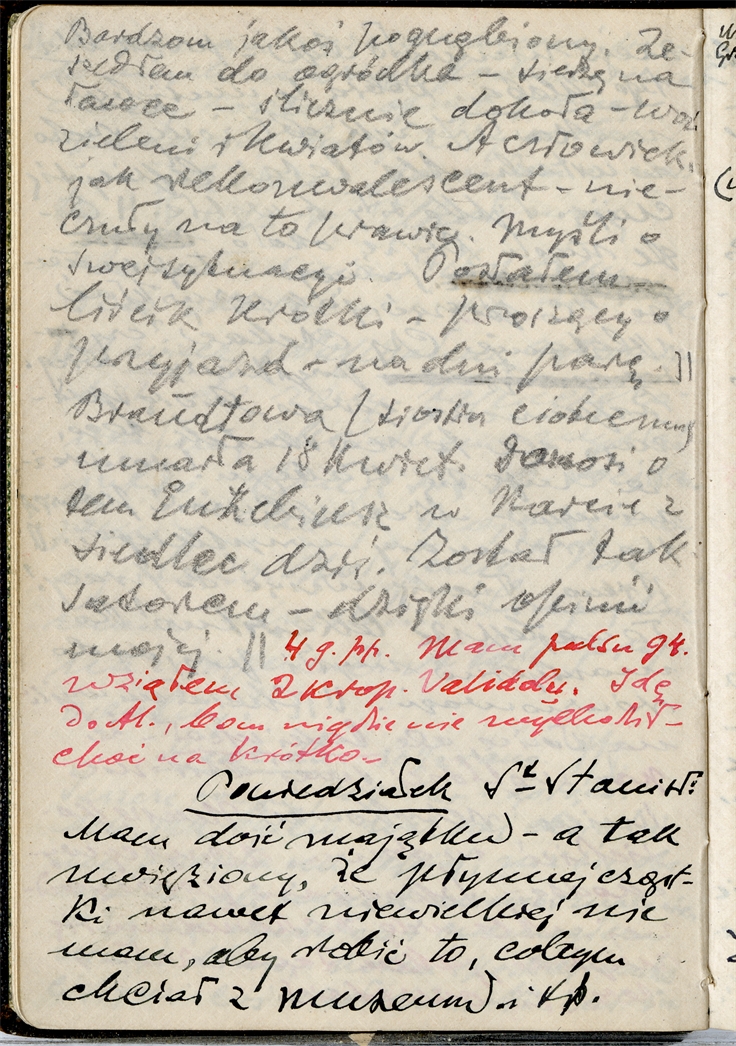 Bardzom jakoś pognębiony. Ze-
szedłem do ogródka – siedzę na
ławce – ślicznie dokoła –
zieleni i kwiatów. A człowiek
jak rekonwalescent – nie-
czuły na to prawie. Myśli o
swej sytuacyi. Posłałem
liścik krótki – proszący o
przyjazd – na dni parę. ||
Brandtowa (siostra
umarła 18 kwiet. Donosi o
tem w karcie z
Siedlec dziś. Został tak-
satorem – dzięki opinii
mojej. || 4 g. pp. Mam pulsu 94.
wziąłem 2 krop. Validolu. Idę
do Al., bom nigdzie nie wychodził –
choć na krótko –
Poniedziałek St Stanisł.
Mam dość majątku – a tak
uwięziony, że płynnej cząst-
ki nawet niewielkiej nie
mam, aby robić to, cobym
chciał z muzeum i t.p.